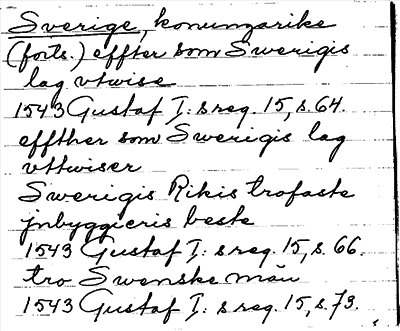 Sverige, konungarike
(forts.) effter som Swerigis
lag vtwise
1543 Gustaf I: s reg. 15, s. 64.
effther som Swerigis lag
vttwiser
Swerigis Rikis trofaste
jnbyggieris beste
1543 Gustaf I: s reg. 15, s. 66.
tro Swenske män
1543 Gustaf I: s reg. 15, s. 73.